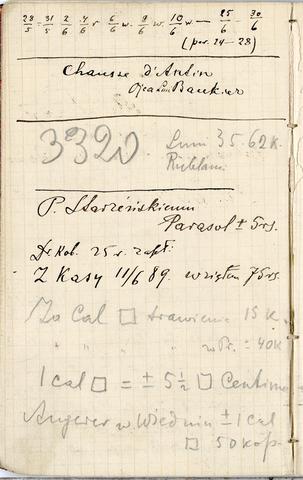 28/5 = 31/5 2/6 4/6 r 6/6 w. 8/6 w. 10/6 w — 25/6 - 30/6
(par. 24 – 28)
Chausse d'Antin
Bankier
3320
Sum 35.62 K.
P. Starzeńskiemu
Parasol ± 5 rs.
Dr Kob. 25 r. zapł.
Z Kasy 11/6 89 wziąłem 75 rs.
Za Cal □ trawienie 15 K.
" " " w Pr. = 40 K
1 cal □ = ± 5 ½ □ Centim
Angerer w Wiedniu ± 1 cal
□ 50 kop.